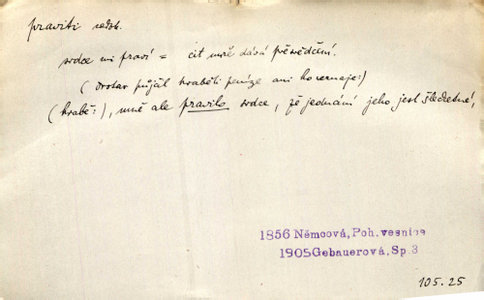 praviti nedok.
srdce mi praví = cit mně dává přesvědčení.
( dvořan půjčil hraběti peníze ani ho neznaje:)
(hrabě:), mně ale pravilo srdce, že jednání jeho jest šlechetné,
1856 Němcová, Poh. vesnice
1905 Gebauerová, Sp. 3
105.25